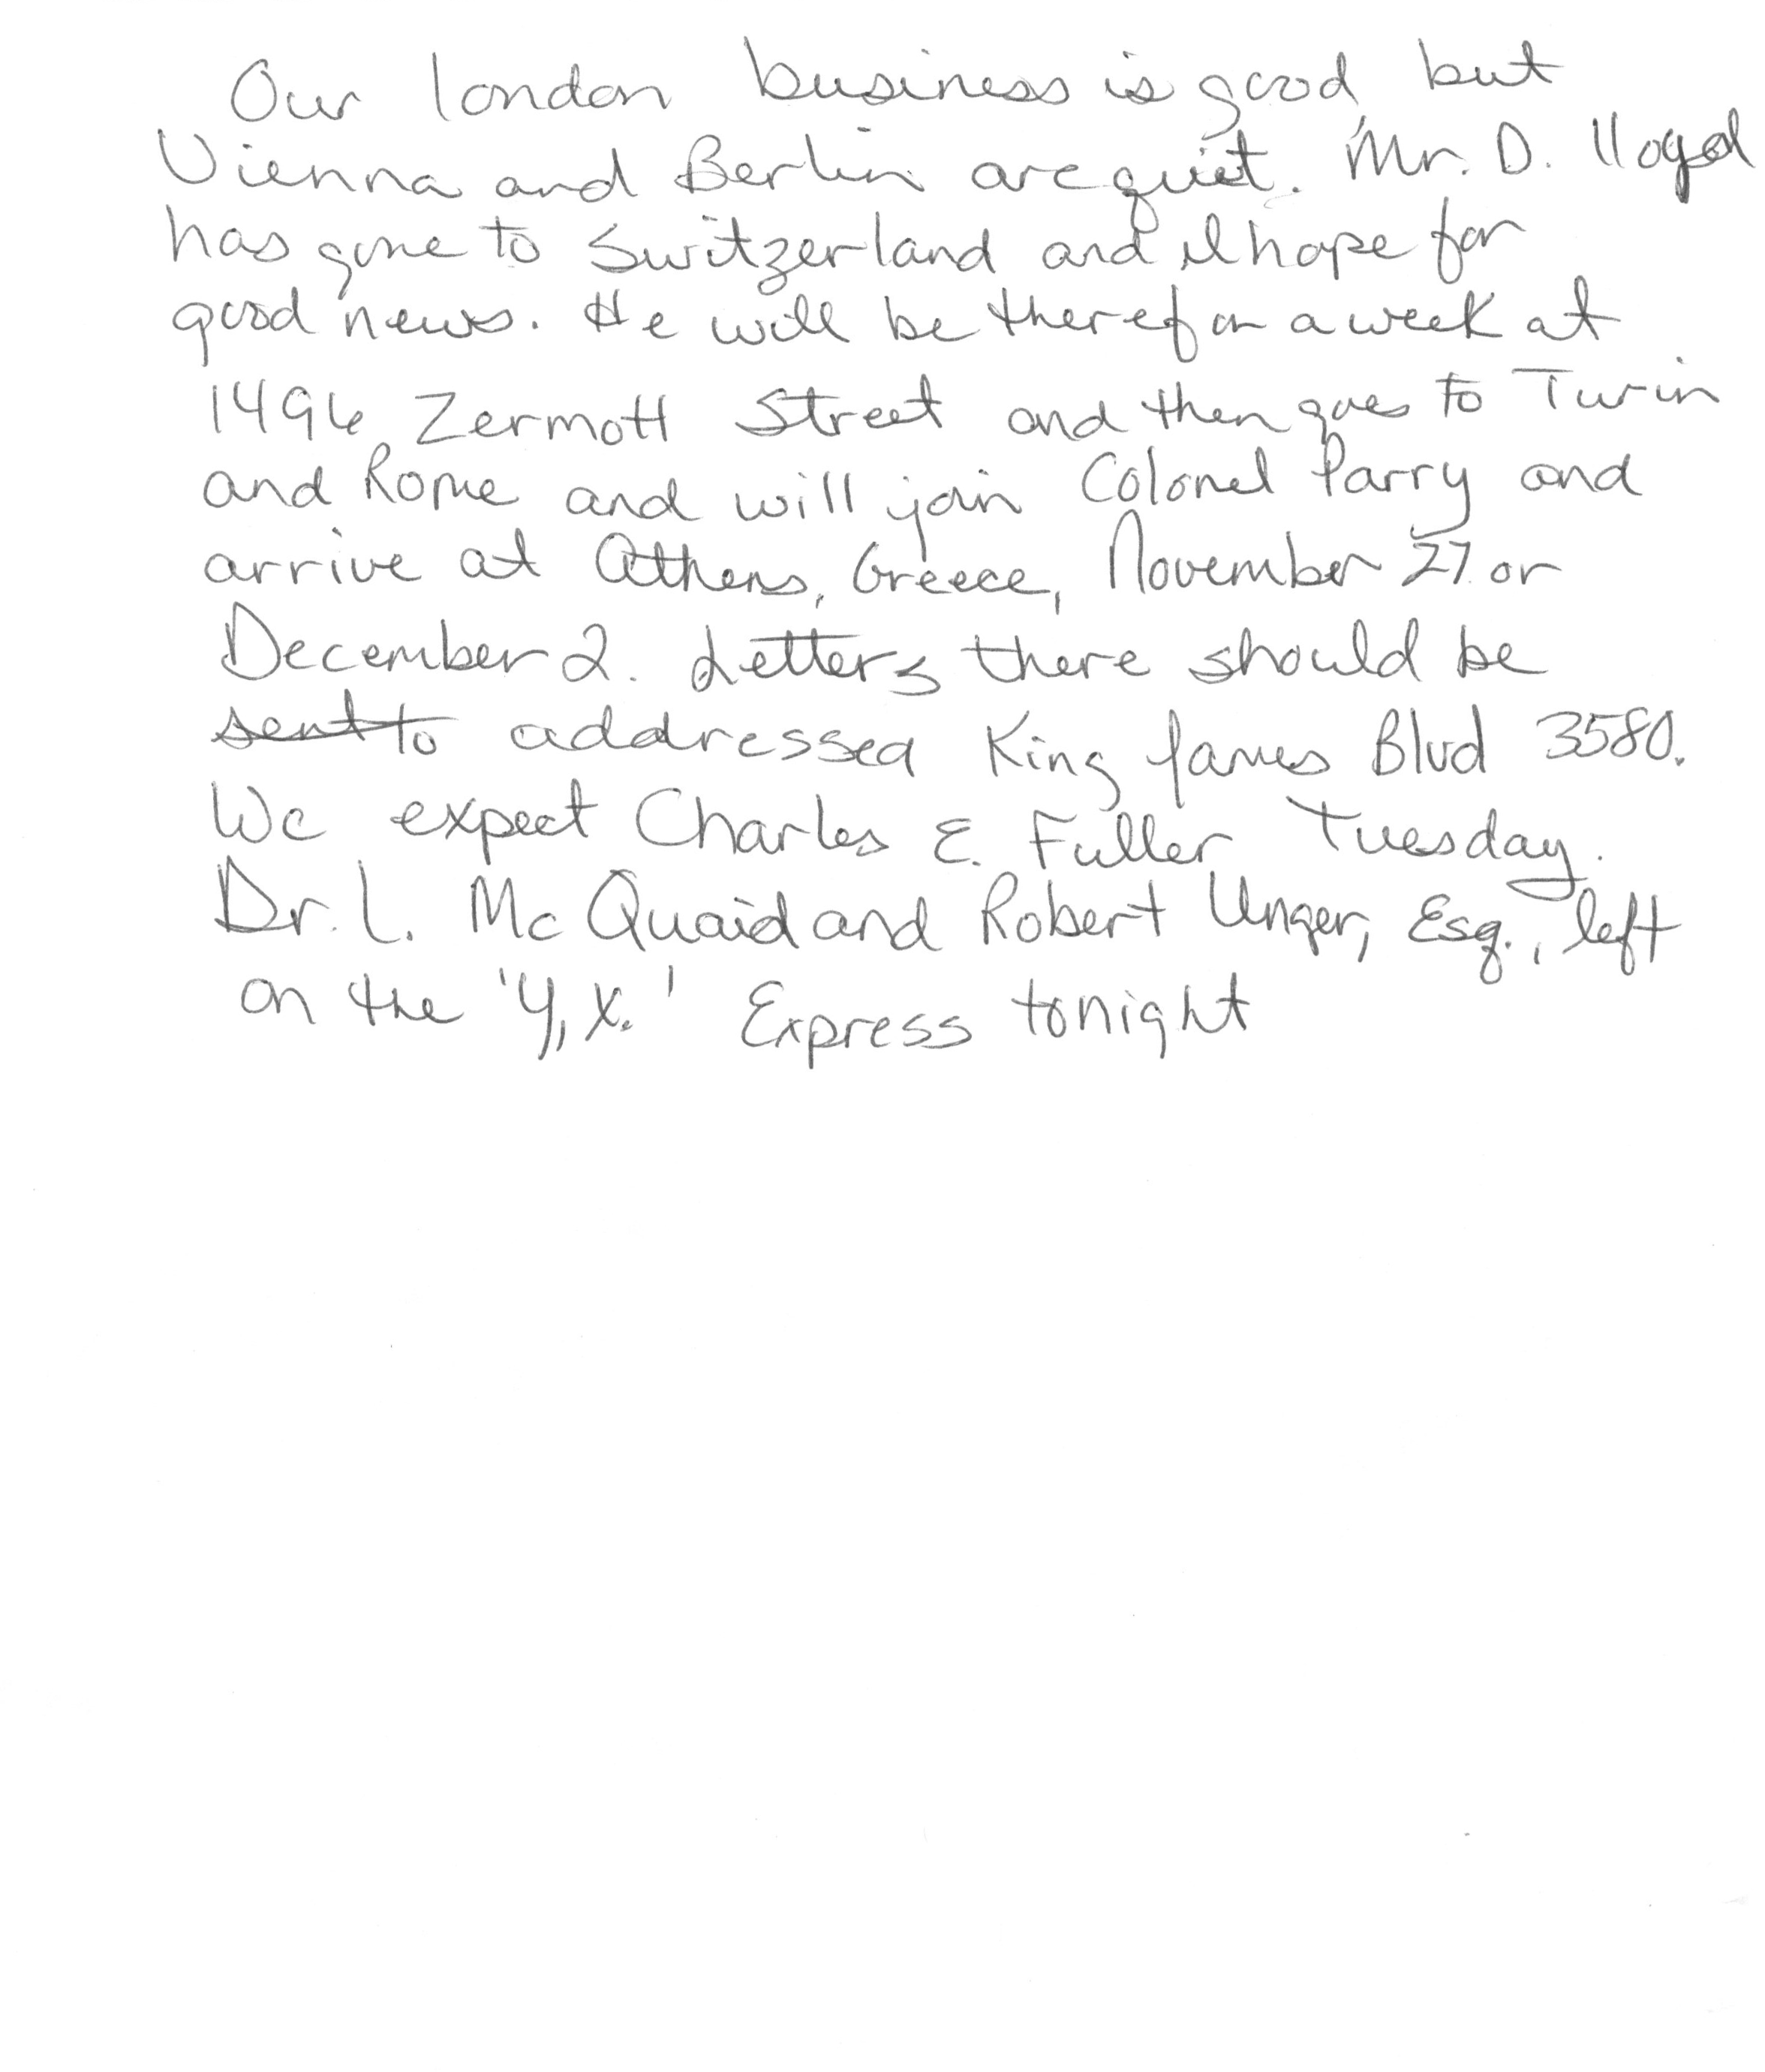 Our london business is good but
Vienna and Berlin are quiet. Mr. D. lloyd
has gone to Switzerland and I hope for
good news. He will be there for a week at
1496 Zermott Street and then goes to Turin
and Rome and will join Colonel Parry and
arrive at Athens, Greece, November 27 or
December 2. Letters there should be
sent to addressed King James Blvd 3580.
We expect Charles E. Fuller Tuesday.
Dr. L. McQuaid and Robert Unger, Esq., left
on the 'Y, X.' Express tonight